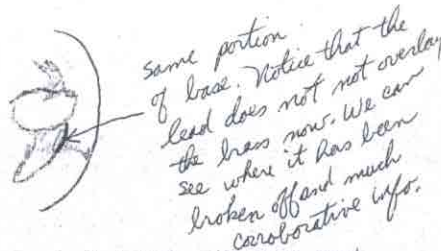 same portion
of base. Notice that the
lead does not not overlay
the brass now. We can
see where it has been
broken off and much
corroborative info.